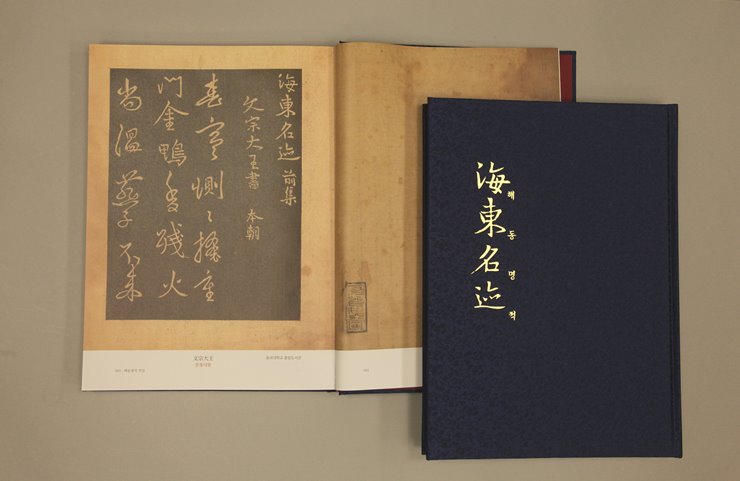 海東名迹 前集
文宗大王書 本朝
春寒惻〻掩重
門金鴨香殘火
尚溫燕子不來
文宗大王
문종대왕
海東名迹
해동명적